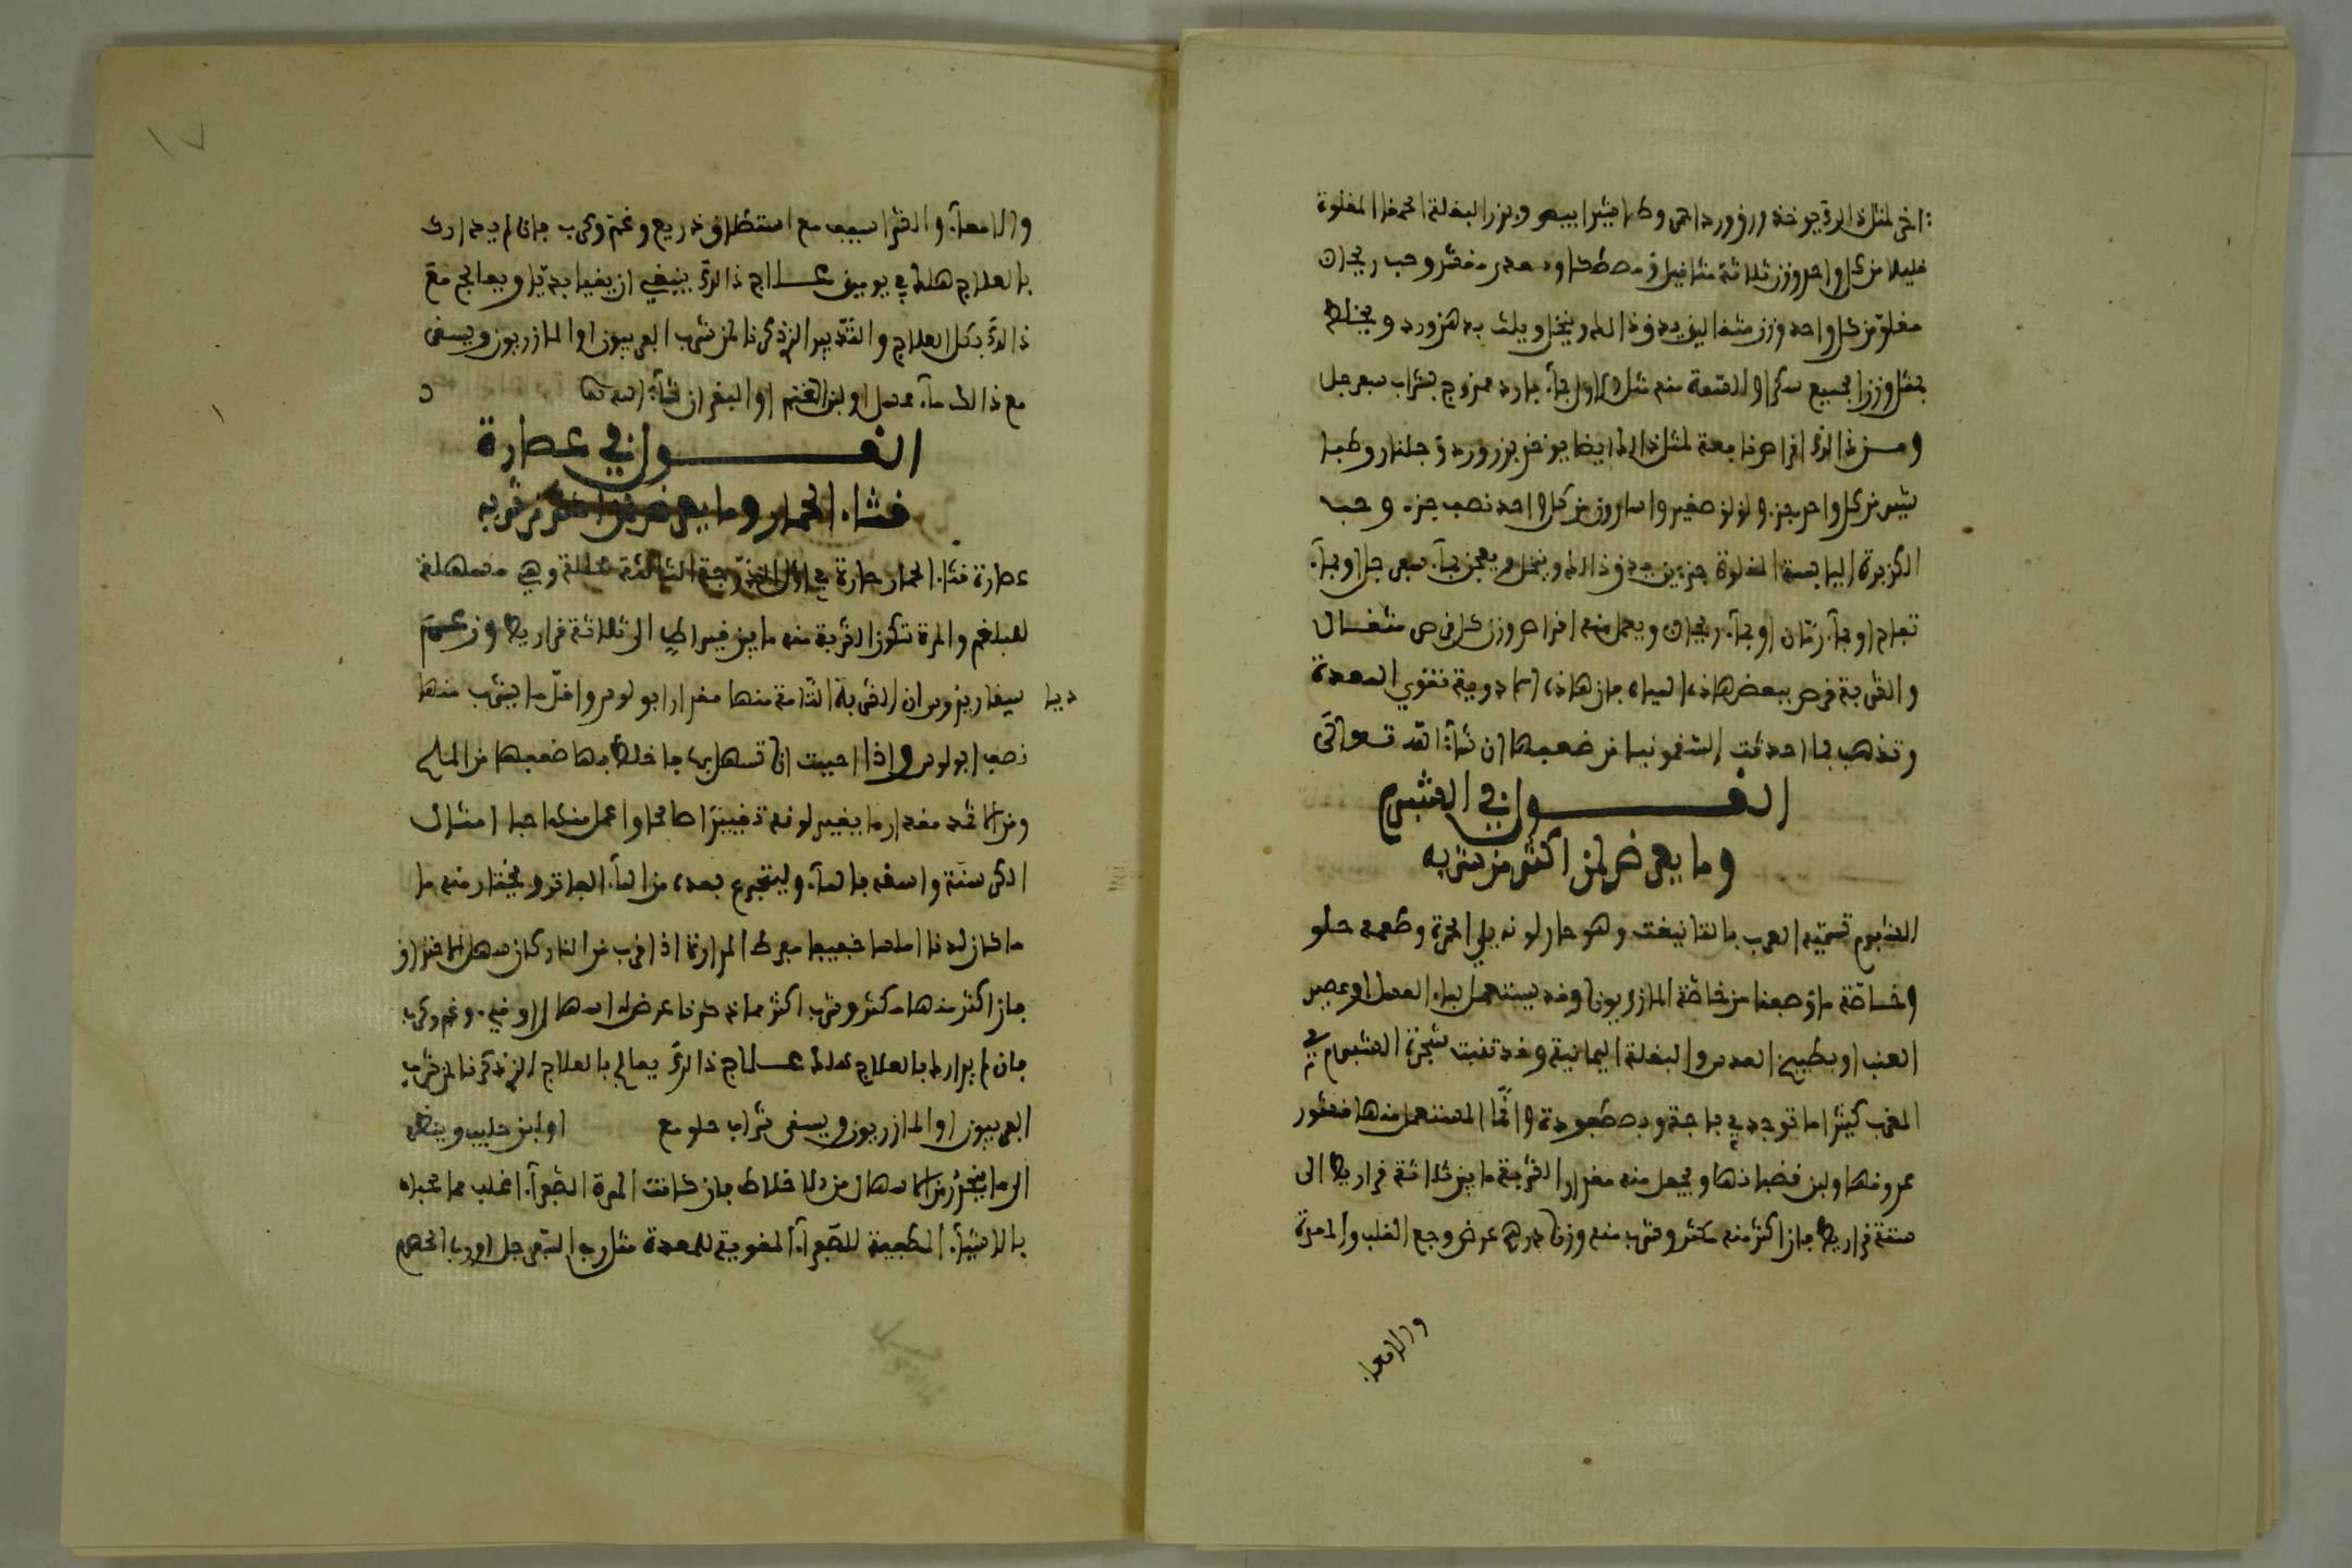 اخر لمثل ذالك يوخذ ورق ورد احمر وطباشير ابيض وبزر البقلة الحمقا المقلوة
قليلا من كل واحد وزن ثلاثة مثاقيل ومصطكا وعدس مقشر وحب ريحان
مقلو من كل واحد وزن مثقالين يدق ذالك وينخل ويلت بدهن ورد ويخلط
بمثل وزن الجميع سكرا والدفعة منه مثل الاول بماء بارد ممزوج بشراب سفرجل
ومن ذالك اقراص نافعة لمثل ذالك ايضا يوخذ بزر ورد وجلنار وطبا
شير من كل واحد جزء ولولو صغير واسارون من كل واحد نصف جزء وحب
الكزبرة اليابسة المقلوة جزءين يدق ذالك وينخل ويعجن بماء سفرجل او بماء
تفاح او بماء رمان او بماء ريحان ويعمل منه اقراص وزن كل قرص مثقال
والشربة قرص ببعض هاذه المياه فان هاذه الادوية تقوي المعدة
وتذهب بما احدثت السقمونيا من ضعفها ان شاء الله تعالى
القول في الشبرم
وما يعرض لمن اكثر من شربه
الشبرم تسميه العرب بالتانيغت وهو حار لونه يلي الحمرة وطعمه حلو
وخاصته ما وصفنا من خاصة المازريون وقد يستعمل بماء العسل او عصير
العنب او بطبيخ العدس والبقلة اليمانية وقد تنبت شجرة الشبرم في
المغرب كثيرا ما توجد في باجة وبصطفورة وانما المستعمل منها قشور
عروقها ولبن قضبانها ويجعل منه مقدار الشربة ما بين ثلاثة قراريط الى
ستة قراريط فان اكثر منه مكثر وشرب منه وزن درهم عرض وجع القلب والمعدة
والامعاء
والامعاء والقراسيف مع استطلاق ذريع وغم وكرب فان لم يدارك
بالعلاج هلك في يومين علاج ذالك ينبغي ان يقيا بديا ويعالج مع
ذالك بكل العلاج والتدبير الذي ذكرنا لمن شرب الفربيون او المازريون ويسقى
مع ذالك ماء عسل او لبن الغنم او البقر ان شاء الله تعالى
القول في عصارة
قثاء الحمار وما يعرض لمن اكثر من شربه
عصارة قثاء الحمار حارة في اول الدرجة الثالثة محللة وهي مسهلة
للبلغم والمرة تكون الشربة منه ما بين قيراط الى ثلاثة قراريط وزعم
ديا
سيقاريذوس ان الشربة التامة منها مقدار ابولوس واقل ما يشرب منها
نصف ابولوس واذا احببت ان تسهل بها فاخلط بها ضعفها من الملح
ومن الاثمد مقدار ما يغير لونه تغييرا صالحا واعمل منه حبا امثال
الكرسنة واسقه بالماء وليتجرع بعده من الماء الفاتر ويختار منه ما
ما كان لدنا املسا خفيفا مفرط المرارة اذا قرب من النار كان سهل الاحتراق
فان اكثر منها مكثر وشرب اكثر مما ذكرنا عرض له اسهال او قيء وغم وكرب
فان لم يدارك بالعلاج هلك علاج ذالك يعالج بالعلاج الذي ذكرنا لمن شرب
الفربيون او المازريون ويسقى شراب حلو مع او لبن حليب وينظر
الى ما يخرج من الاسهال من الاخلاط فان كانت المرة الصفراء اغلب مما عجناه
بالاشياء المطفية للصفراء المقوية للمعدة مثل رب السفرجل او رب الحصرم